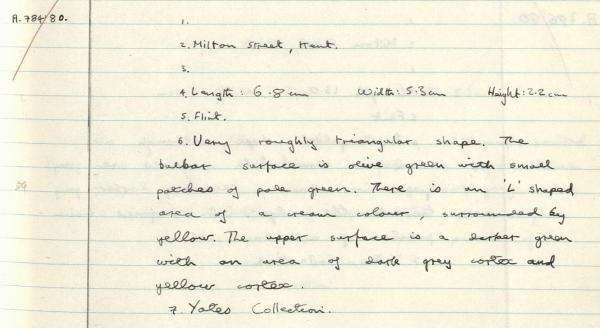 A.784/80.
1.
2. Milton Street, Kent.
3.
4. Length: 6.8cm Width: 5.3cm Height: 2.2cm
5. Flint.
6. Very roughly triangular shape. The
bulbar surface is olive green with small
patches of pale green. There is an 'L' shaped
area of a cream colour, surrounded by
yellow. The upper surface is a darker green
with an area of dark grey cortex and
yellow cortex.
7. Yates Collection.